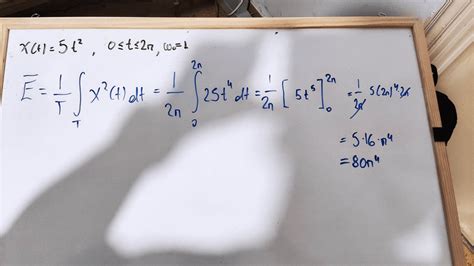 x(t) = 5t², 0≤t≤2π, ω₀=1
E̅ = 1/T ∫_T x²(t)dt = 1/2π ∫₀^2π 25t⁴dt = 1/2π [5t⁵]₀^2π = 1/2π 5(2π)⁴·2π
= 5·16·π⁴
= 80π⁴